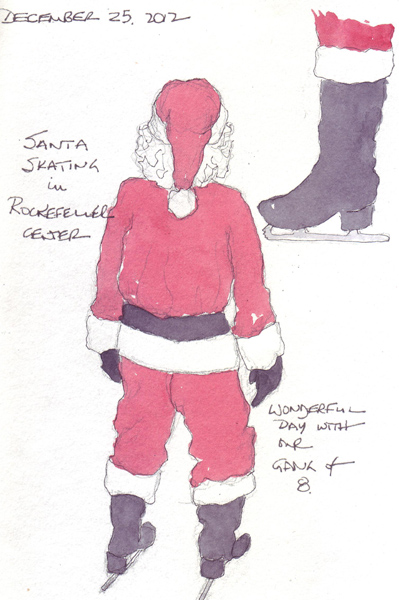 DECEMBER 25, 2012
SANTA
SKATING
in
ROCKEFELLER
CENTER
WONDERFUL
DAY WITH
OUR
GANG of
8.